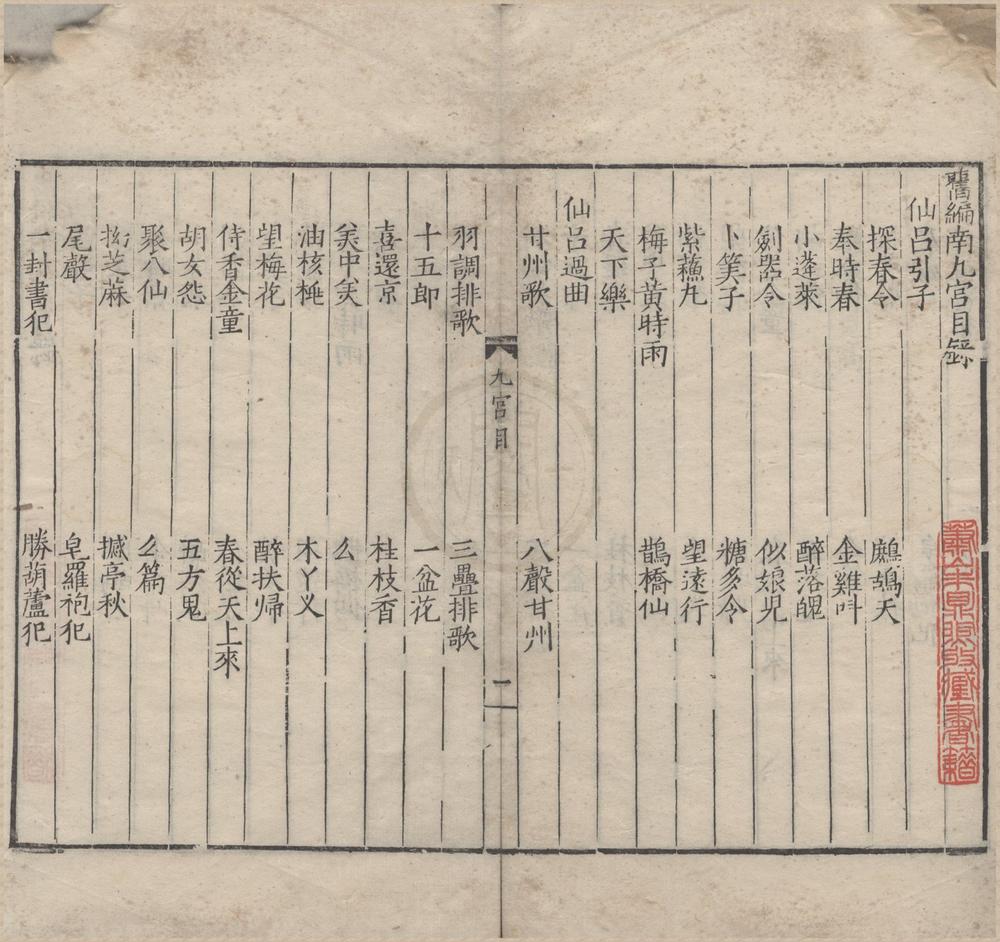 舊編南九宮目錄
仙呂引子
探春令 鷓鴣天
奉時春 金雞呌
小蓬萊 醉落魄
劍器令 似娘兒
卜筭子 糖多令
紫蘇丸 望遠行
梅子黃時雨 鵲橋仙
天下樂
仙呂過曲
甘州歌 八聲甘州
九宮目 一
羽調排歌 三疊排歌
十五郎 一盆花
喜還京 桂枝香
美中美 么
油核桃 木丫义
望梅花 醉扶帰
侍香金童 春從天上來
胡女怨 五方鬼
聚八仙 么篇
芝蔴 撼亭秋
尾聲
皂羅袍犯
一封書犯 勝葫蘆犯